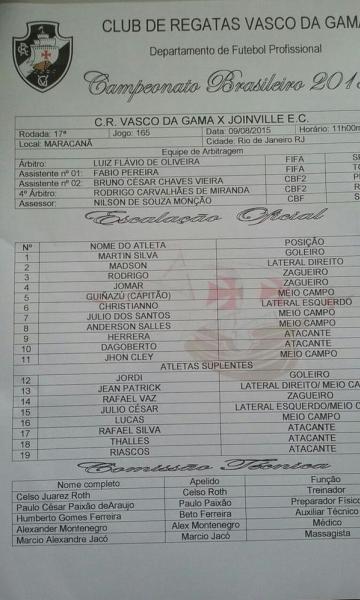 CLUB DE REGATAS VASCO DA GAMA
Departamento de Futebol Profissional
Campeonato Brasileiro 2015
C.R. VASCO DA GAMA X JOINVILLE E.C.
Rodada: 17ª Jogo: 165 Data: 09/08/2015 Horário: 11h00m
Local: MARACANÃ Cidade: Rio de Janeiro RJ
Equipe de Arbitragem
Árbitro: LUIZ FLÁVIO DE OLIVEIRA FIFA
Assistente nº 01: FABIO PEREIRA FIFA
Assistente nº 02: BRUNO CÉSAR CHAVES VIEIRA CBF2
4º Árbitro: RODRIGO CARVALHÃES DE MIRANDA CBF2
Assessor: NILSON DE SOUZA MONÇÃO CBF
Escalação Oficial
Nº NOME DO ATLETA POSIÇÃO
1 MARTIN SILVA GOLEIRO
2 MADSON LATERAL DIREITO
3 RODRIGO ZAGUEIRO
4 JOMAR ZAGUEIRO
5 GUIÑAZÚ (CAPITÃO) MEIO CAMPO
6 CHRISTIANNO LATERAL ESQUERDO
7 JULIO DOS SANTOS MEIO CAMPO
8 ANDERSON SALLES MEIO CAMPO
9 HERRERA ATACANTE
10 DAGOBERTO ATACANTE
11 JHON CLEY MEIO CAMPO
ATLETAS SUPLENTES
12 JORDI GOLEIRO
13 JEAN PATRICK LATERAL DIREITO/ MEIO CA
14 RAFAEL VAZ ZAGUEIRO
15 JULIO CÉSAR LATERAL ESQUERDO/MEIO C
16 LUCAS MEIO CAMPO
17 RAFAEL SILVA ATACANTE
18 THALLES ATACANTE
19 RIASCOS ATACANTE
Comissão Técnica
Nome completo Apelido Função
Celso Juarez Roth Celso Roth Treinador
Paulo César Paixão deAraujo Paulo Paixão Preparador Físico
Humberto Gomes Ferreira Beto Ferreira Auxiliar Técnico
Alexander Montenegro Alex Montenegro Médico
Marcio Alexandre Jacó Marcio Jacó Massagista